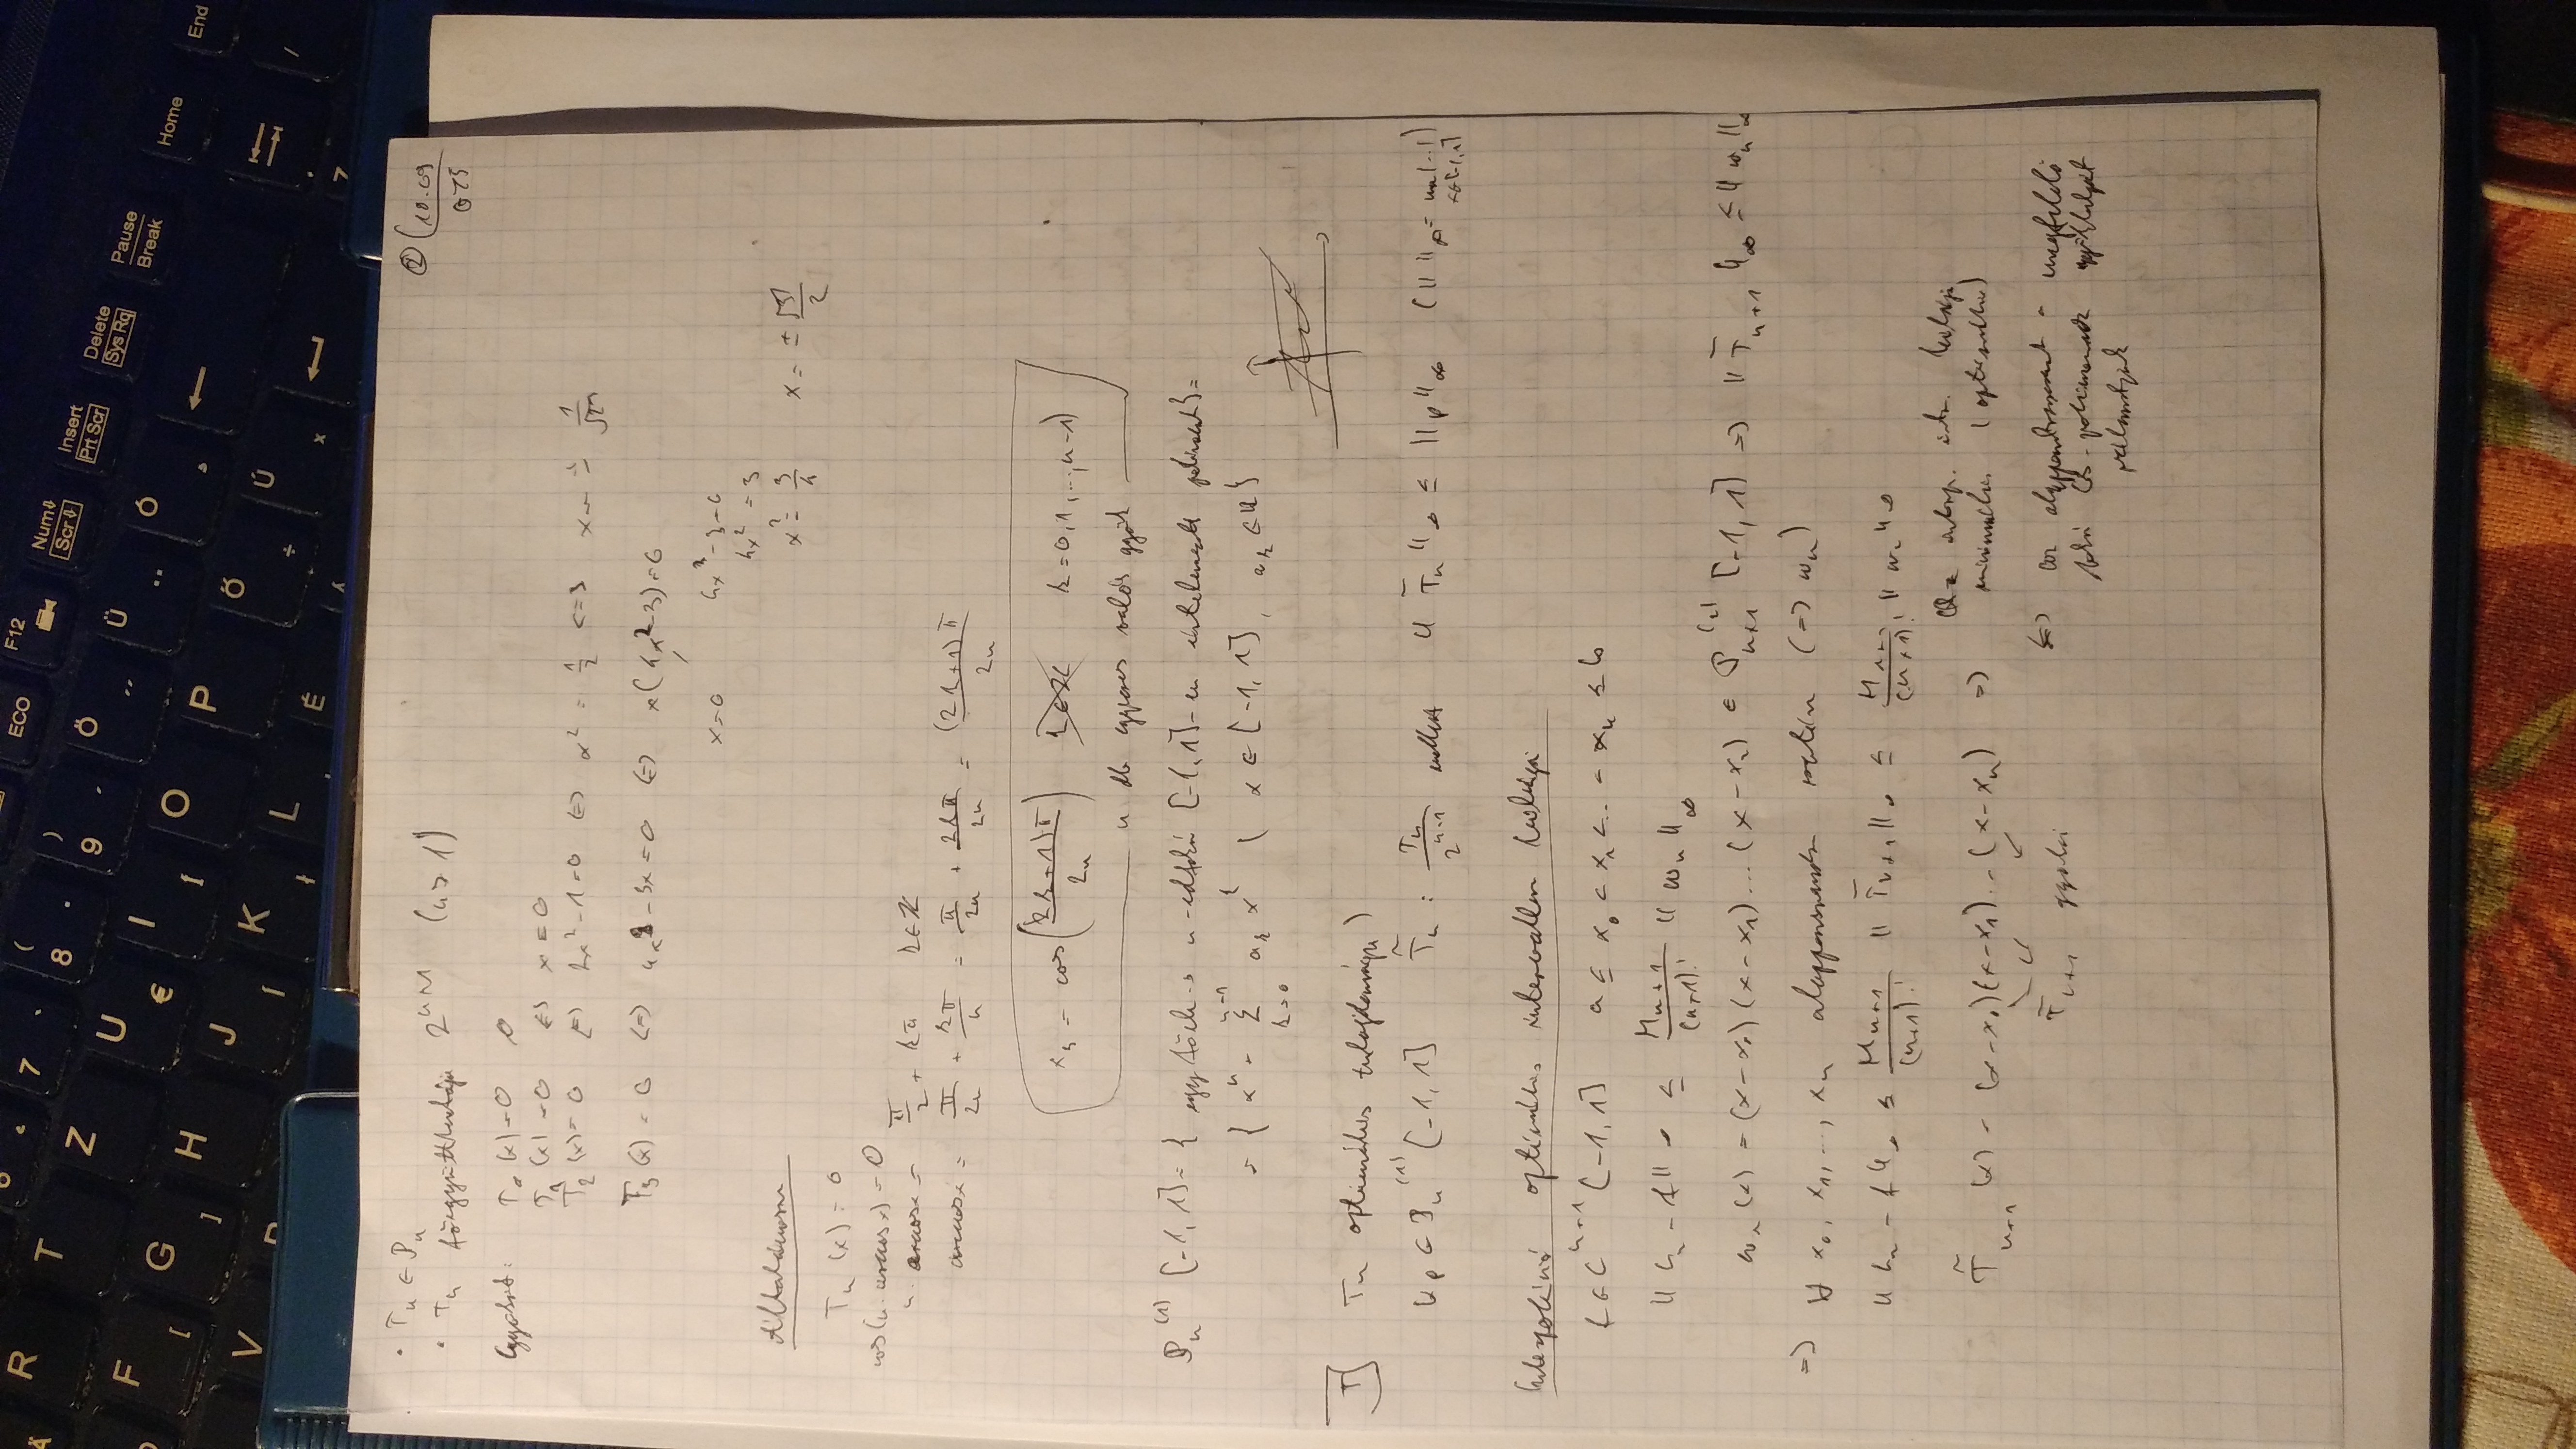 R T Z 7 8 ( 9 ) ECO F12 Num Scr Insert Prt Scr Delete Sys Rq Pause Break Home End
F G H U € I Í O P Ö Ü Ó
[ ] J K L Ő Ú É
V
② 10.09
• Tₙ ∈ 𝒫ₙ
• Tₙ főegyütthatója (n ≥ 1)
Gyökök: T₀(x) = 0
T₁(x) = 0 ⇔ x = 0
T₂(x) = 0 ⇔ 2x² - 1 = 0 ⇔ x² = 1/2 ⇔ x = ± 1/√2
T₃(x) = 0 ⇔ 4x³ - 3x = 0 ⇔ x(4x² - 3) = 0
x = 0
4x² = 3
x² = 3/4 x = ± √3/2
Általánosan
Tₙ(x) = 0
cos(n · arccos x) = 0
n · arccos x = π/2 + kπ k ∈ ℤ
arccos x = π/2n + kπ/n = π/2n + 2kπ/2n = (2k+1)π/2n
xₖ = cos((2k+1)π/2n) k = 0, 1, ..., n-1)
n db egyszeres valós gyök
𝒫ₙ⁽¹⁾ [-1, 1] = { egy főeh-s n-edfokú [-1, 1]-en értelmezett polinomok } =
= { xⁿ + Σₖ₌₀ⁿ⁻¹ aₖ xᵏ | x ∈ [-1, 1], aₖ ∈ ℝ }
T] Tₙ optimális tulajdonsága)
∀p ∈ 𝒫ₙ⁽¹⁾ [-1, 1] T̃ₙ := Tₙ/2ⁿ⁻¹ mellett ‖T̃ₙ‖∞ ≤ ‖p‖∞
Interpoláció optimális intervallum hibája
f ∈ Cⁿ⁺¹ [-1, 1] a ≤ x₀ < x₁ < .. < xₙ ≤ b
‖Lₙ - f‖∞ ≤ Mₙ₊₁/(n+1)! ‖ωₙ‖∞
ωₙ(x) = (x - x₀)(x - x₁)...(x - xₙ) ∈ 𝒫ₙ₊₁⁽¹⁾ [-1, 1] ⇒ ‖T̃ₙ₊₁‖∞ ≤ ‖ωₙ‖∞
⇒ ∀ x₀, x₁, ..., xₙ alappontrendszer esetén (⇒ ωₙ)
‖Lₙ - f‖∞ ≤ Mₙ₊₁/(n+1)! ‖T̃ₙ₊₁‖∞ ≤ Mₙ₊₁/(n+1)! ‖ωₙ‖∞
T̃ₙ₊₁(x) = (x - x₀)(x - x₁)...(x - xₙ) ⇒ Az interp. int. hibája
minimális (optimális)
T̃ₙ₊₁ gyökei
⇔ az alappontrendszert a megfelelő
fokú Cs-polinomnak gyökhelyeit
választjuk